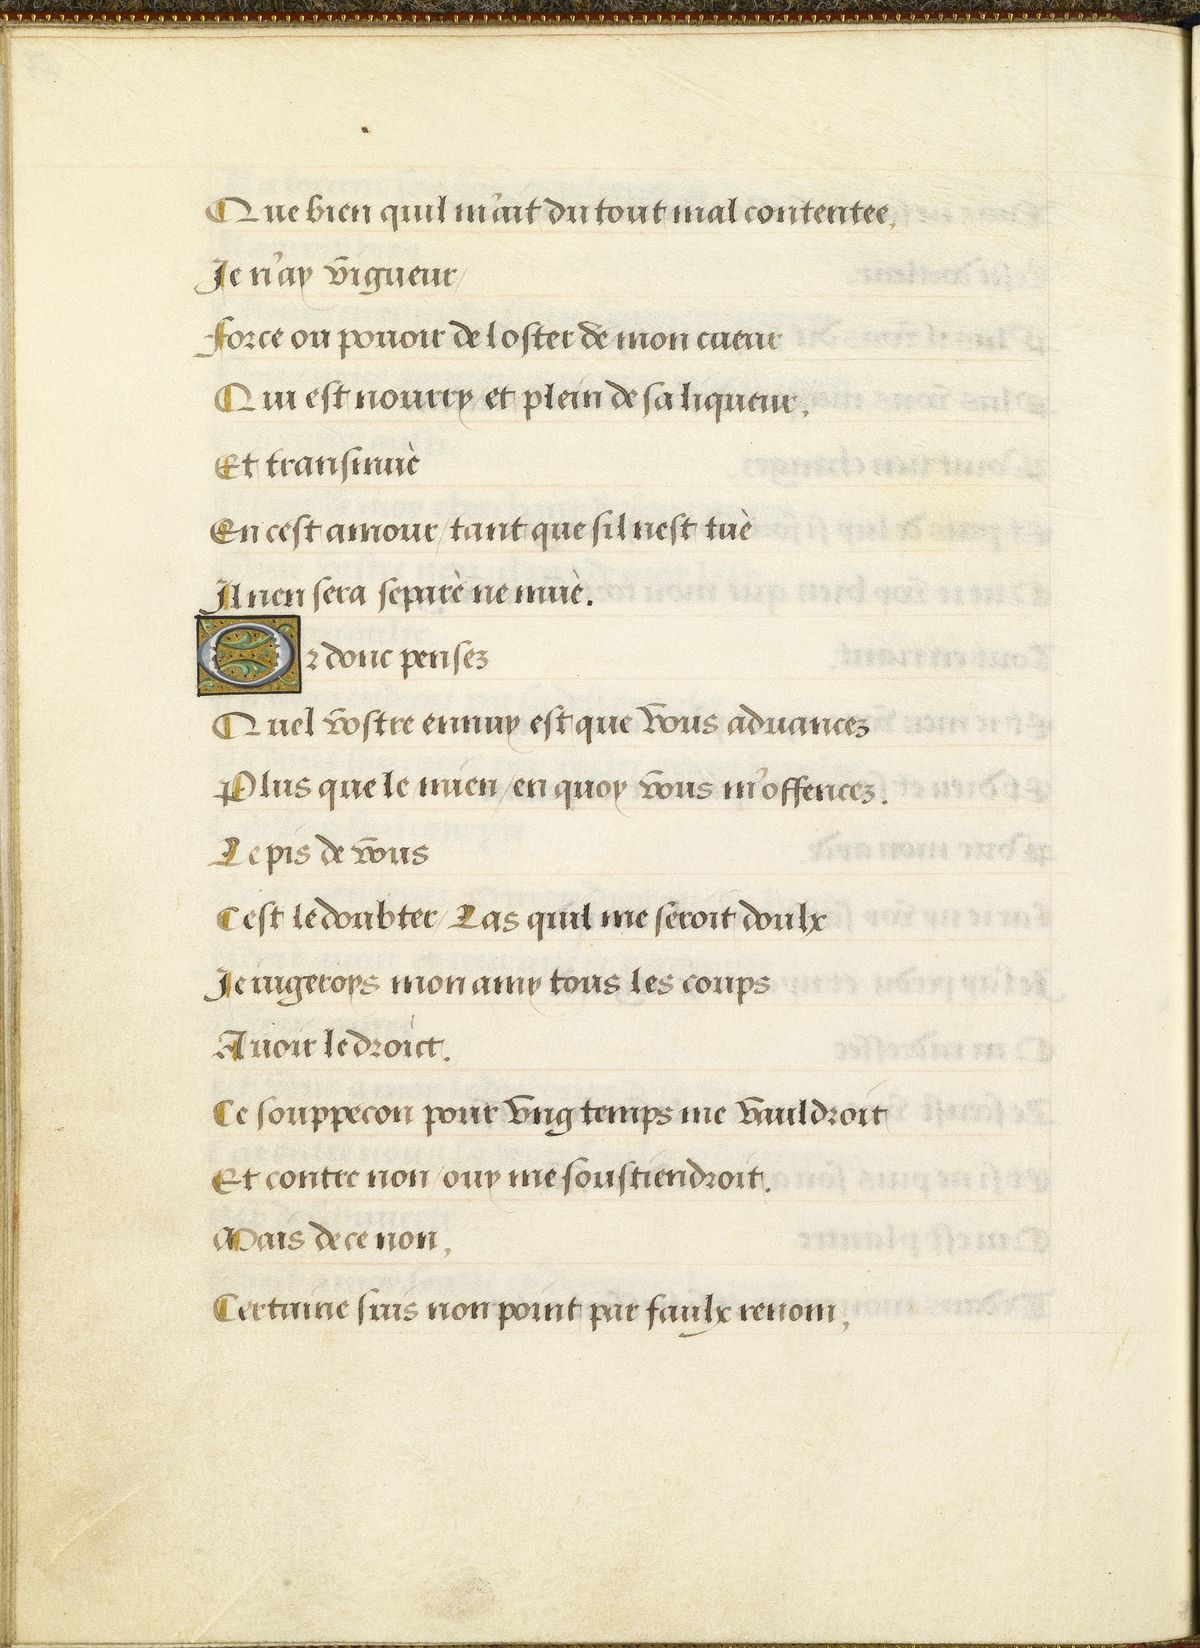 Que bien quil m'ait du tout mal contentee,
Je n'ay vigueur/
Force ou pouoir de loster de mon cueur
Qui est nourry et plein de sa liqueur,
Et transmuè
En cest amour/tant que sil nest tuè
Il nen sera separè ne muè.
Or donc pensez
Quel vostre ennuy est que vous aduancez
Plus que le mien/en quoy vous m'offencez.
Le pis de vous
Cest le doubter/Las quil me seroit doulx
Je iugeroys mon amy tous les coups
Auoir le droict.
Ce souppecon pour vng temps me vauldroit
Et contre non/ouy me soustiendroit.
Mais de ce non,
Certaine suis non point par faulx renom,